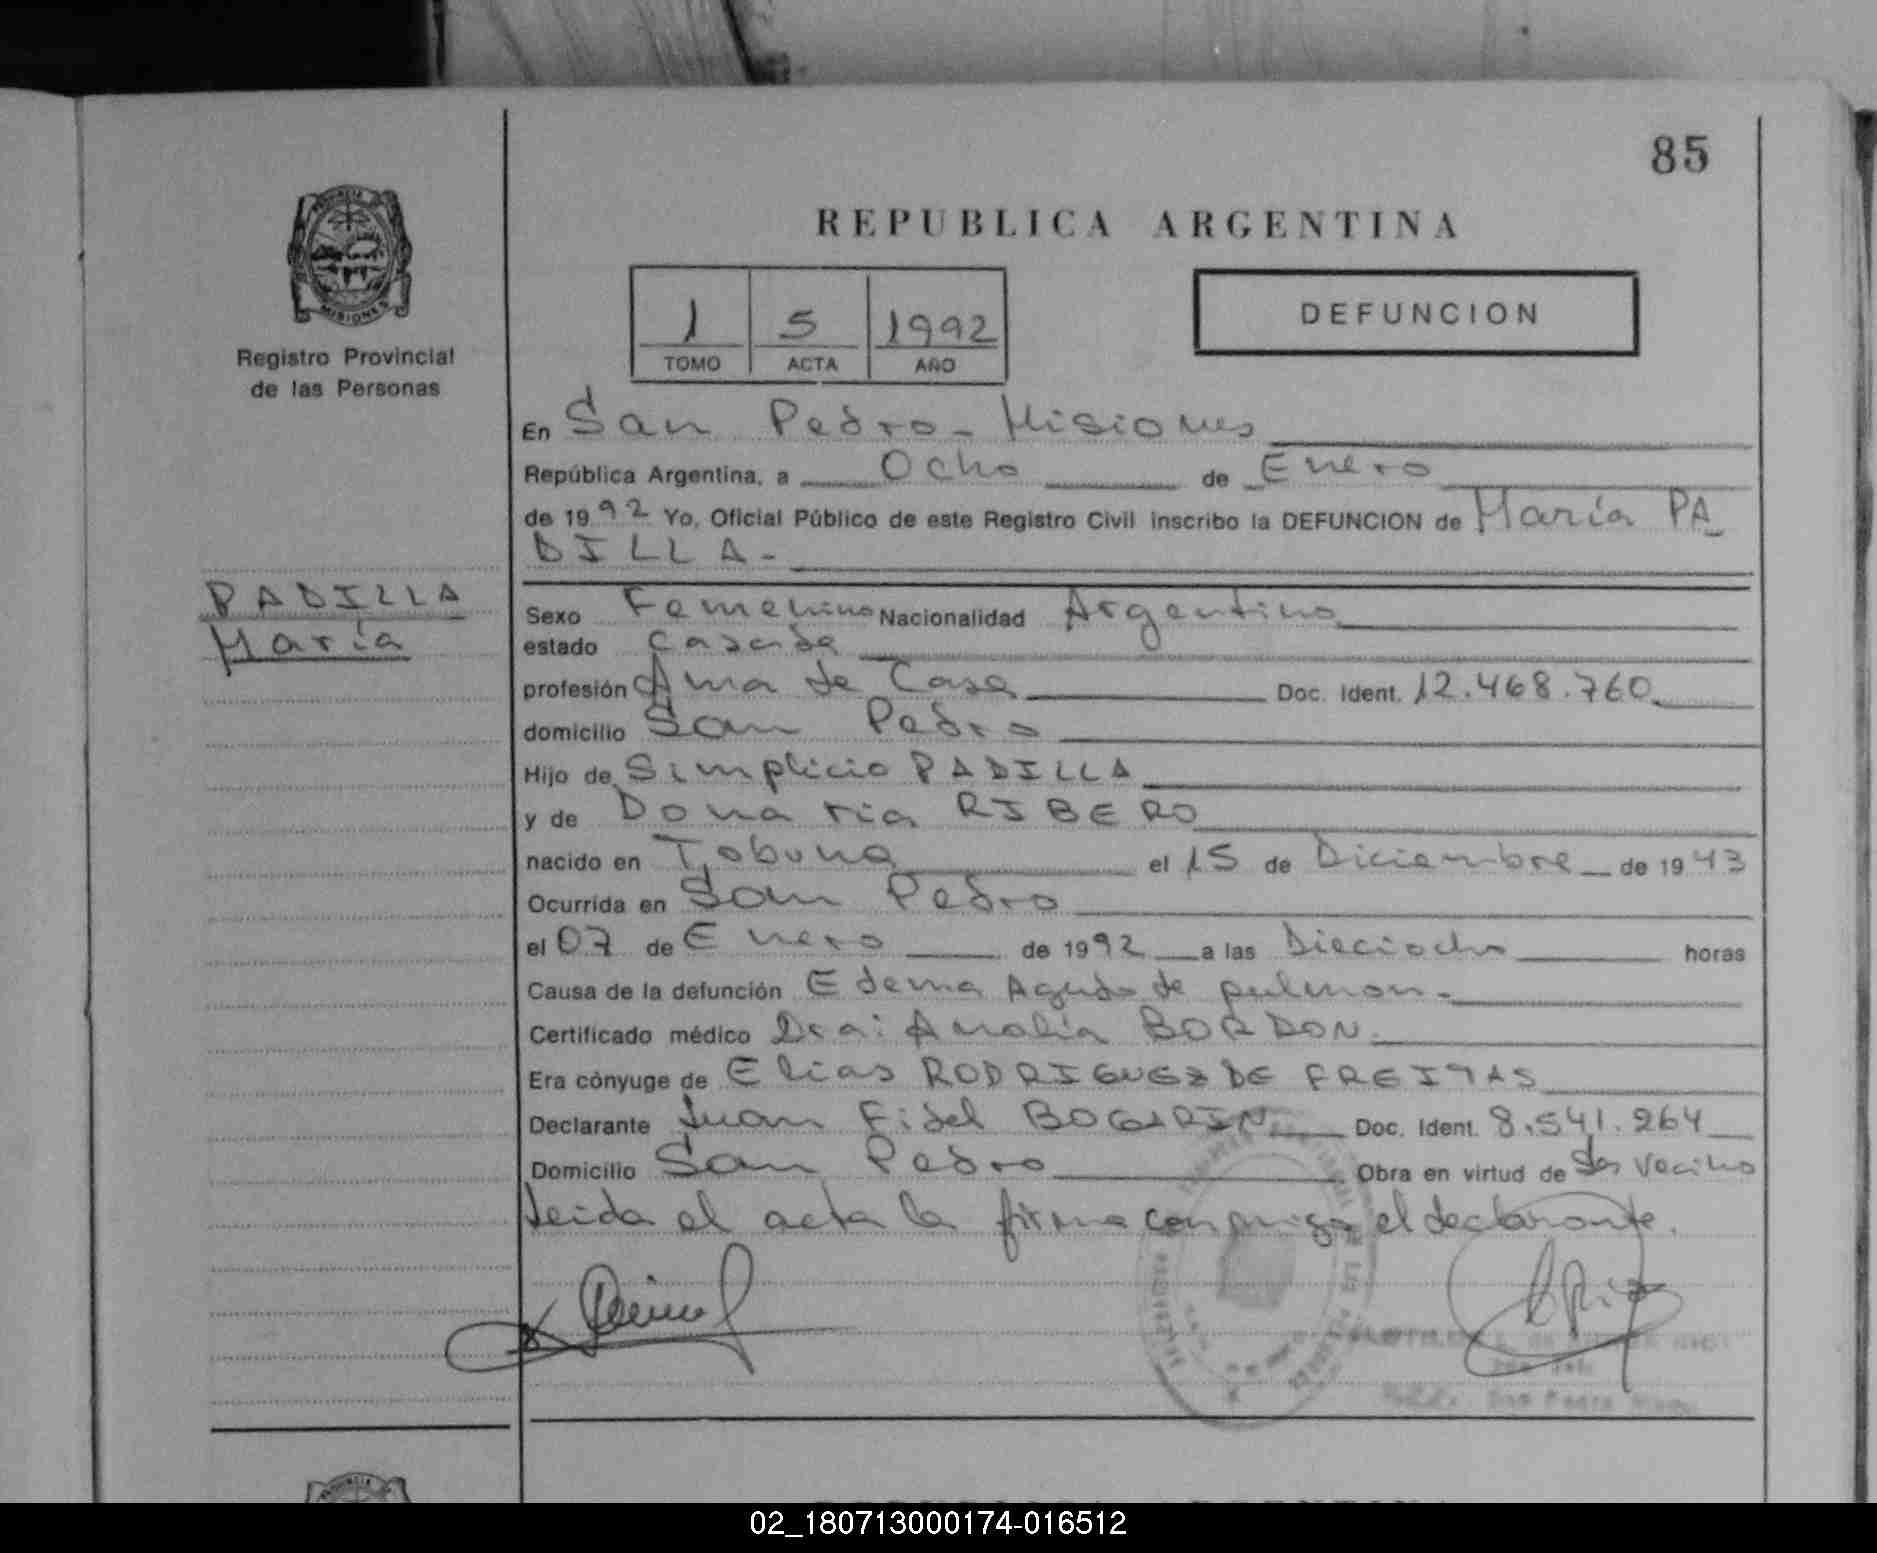 85
REPUBLICA ARGENTINA
PROVINCIA
MISIONES
Registro Provincial
de las Personas
1 5 1992
TOMO ACTA AÑO
DEFUNCION
En San Pedro - Misiones
República Argentina, a Ocho de Enero
de 1992 Yo, Oficial Público de este Registro Civil inscribo la DEFUNCION de María PA
DILLA-
PADILLA
María
Sexo Femenino Nacionalidad Argentina
estado casada
profesión Ama de Casa Doc. Ident. 12.468.760
domicilio San Pedro
Hijo de Simplicio PADILLA
y de Dona ria RIBERO
nacido en Tobuna el 15 de Diciembre de 1943
Ocurrida en San Pedro
el 07 de Enero de 1992 a las Dieciocho horas
Causa de la defunción Edema Agudo de pulmon.
Certificado médico Dra: Analía BORDON.
Era cónyuge de Elias RODRIGUEZ DE FREITAS
Declarante Juan Fidel BOGARIN Doc. Ident. 8.541.264
Domicilio San Pedro Obra en virtud de Ser vecino
Leida el acta la firma conmigo el declarante.
02_180713000174-016512